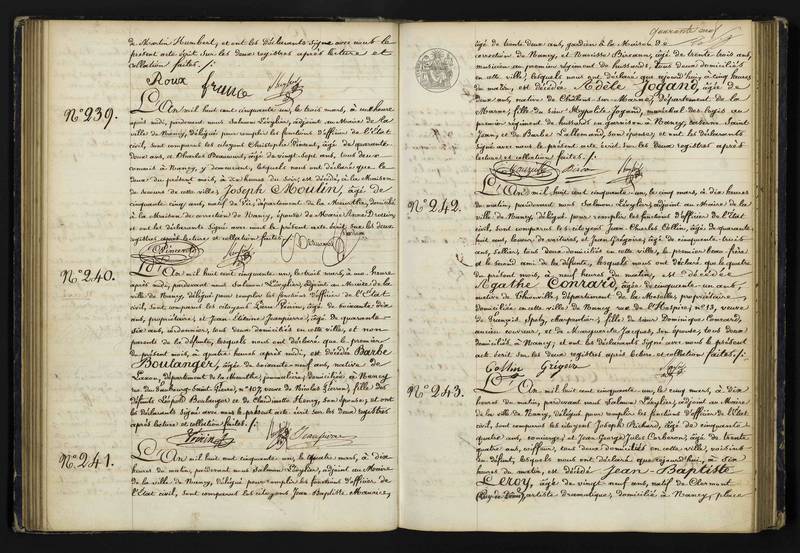 de Martin Humbert, et ont les déclarants signé avec nous le
présent acte écrit sur les deux registres après lecture et
collation faites. /:
Roux france
N.° 239. L'An mil huit cent cinquante un, le trois mars, à une heure
après midi, pardevant nous Salmon Lévylier, adjoint au Maire de la
ville de Nancy, délégué pour remplir les fonctions d'officier de l'État
civil, sont comparus les citoyens Christophe Vincent, âgé de quarante
deux ans, et Charles Beaumont, âgé de vingt-sept ans, tous deux
à Nancy, y demeurant, lesquels nous ont déclaré que le
deux du présent mois, à dix heures du soir, est décédé, à la Maison
de secours de cette ville, Joseph Moulin, âgé de
cinquante cinq ans, natif de Vic, département de la Meurthe, domicilié
à la Maison de correction de Nancy, époux de Marie Anne
et ont les déclarants signé avec nous le présent acte écrit sur les deux
registres après lecture et collation faites /:
Vincent
N.° 240. L'An mil huit cent cinquante un, le trois mars, à une heure
après midi, pardevant nous Salmon Lévylier, adjoint au Maire de la
ville de Nancy, délégué pour remplir les fonctions d'officier de l'État
civil, sont comparus les citoyens Léon âgé de soixante dix
ans, propriétaire, et Jean Étienne Jeanpierre, âgé de quarante-
six ans, cordonnier, tout deux domiciliés en cette ville, et non
parents de la défunte, lesquels nous ont déclaré que le premier
du présent mois, à quatre heures après midi, est décédée Barbe
Boulanger, âgée de soixante-neuf ans, native de
Laxou, département de la Meurthe, journalière, domiciliée à Nancy
rue du faubourg Saint Pierre, n.° 107, veuve de Nicolas fille des
défunts Léopold Boulanger et de Claudinette Henry, son épouse; et ont
les déclarants signé avec nous le présent acte écrit sur les deux registres
après lecture et collation faites. /:
Jeanpierre
N.° 241. L'An mil huit cent cinquante un, le quatre mars, à dix
heures du matin, pardevant nous Salmon Lévylier, adjoint au Maire
de la ville de Nancy, délégué pour remplir les fonctions d'officier de
l'État civil, sont comparus les citoyens Jean Baptiste
quarante
âgé de trente deux ans, gardien à la Maison de
correction de Nancy, et Narcisse âgé de trente trois ans,
musicien au premier régiment de hussards, tous deux domiciliés
en cette ville, lesquels nous ont déclaré que aujourd'hui, à cinq heures
du matin, est décédée Adèle Jogand, âgée de
deux ans, native de Châlons-sur-Marne, département de la
Marne, fille du sieur Hyppolite Jogand, maréchal des logis au
premier régiment de hussards en garnison à Nancy, caserne Saint
Jean, et de Barbe Lallemand, son épouse; et ont les déclarants
signé avec nous le présent acte écrit sur les deux registres après
lecture et collation faites. /:
N.° 242. L'An mil huit cent cinquante-un, le cinq mars, à dix heures
du matin, pardevant nous Salmon Lévylier, adjoint au Maire de la
ville de Nancy, délégué pour remplir les fonctions d'officier de l'État
civil, sont comparus les citoyens Jean Charles Collin, âgé de quarante
huit ans, loueur de voitures, et Jean Grégoire, âgé de cinquante trois
ans, sellier, tous deux domiciliés en cette ville, le premier beau frère
et le second ami de la défunte, lesquels nous ont déclaré que le quatre
du présent mois, à neuf heures du matin, est décédée
Agathe Conrard, âgée de cinquante-un ans,
native de Thionville, département de la Moselle, propriétaire,
domiciliée en cette ville de Nancy rue de l'Hospice, n.° 13, veuve
de François fille de Dominique Conrard,
ancien couvreur, et de Marguerite Jacques, son épouse, tous deux
domiciliés à Nancy; et ont les déclarants signé avec nous le présent
acte écrit sur les deux registres après lecture et collation faites. /:
Collin Grégoire
N.° 243. L'An mil huit cent cinquante-un, le cinq mars, à dix
heures du matin, pardevant nous Salmon Lévylier, adjoint au Maire
de la ville de Nancy, délégué pour remplir les fonctions d'officier de l'État
civil, sont comparus les citoyens Joseph Richard, âgé de cinquante-
quatre ans, concierge, et Jean George Jules âgé de trente
quatre ans, coiffeur, tous deux domiciliés en cette ville, voisins
du défunt, lesquels nous ont déclaré que aujourd'hui, à six
heures du matin, est décédé Jean-Baptiste
Leroy, âgé de vingt-neuf ans, natif de Clermont
(Puy de Dôme), artiste dramatique, domicilié à Nancy, place